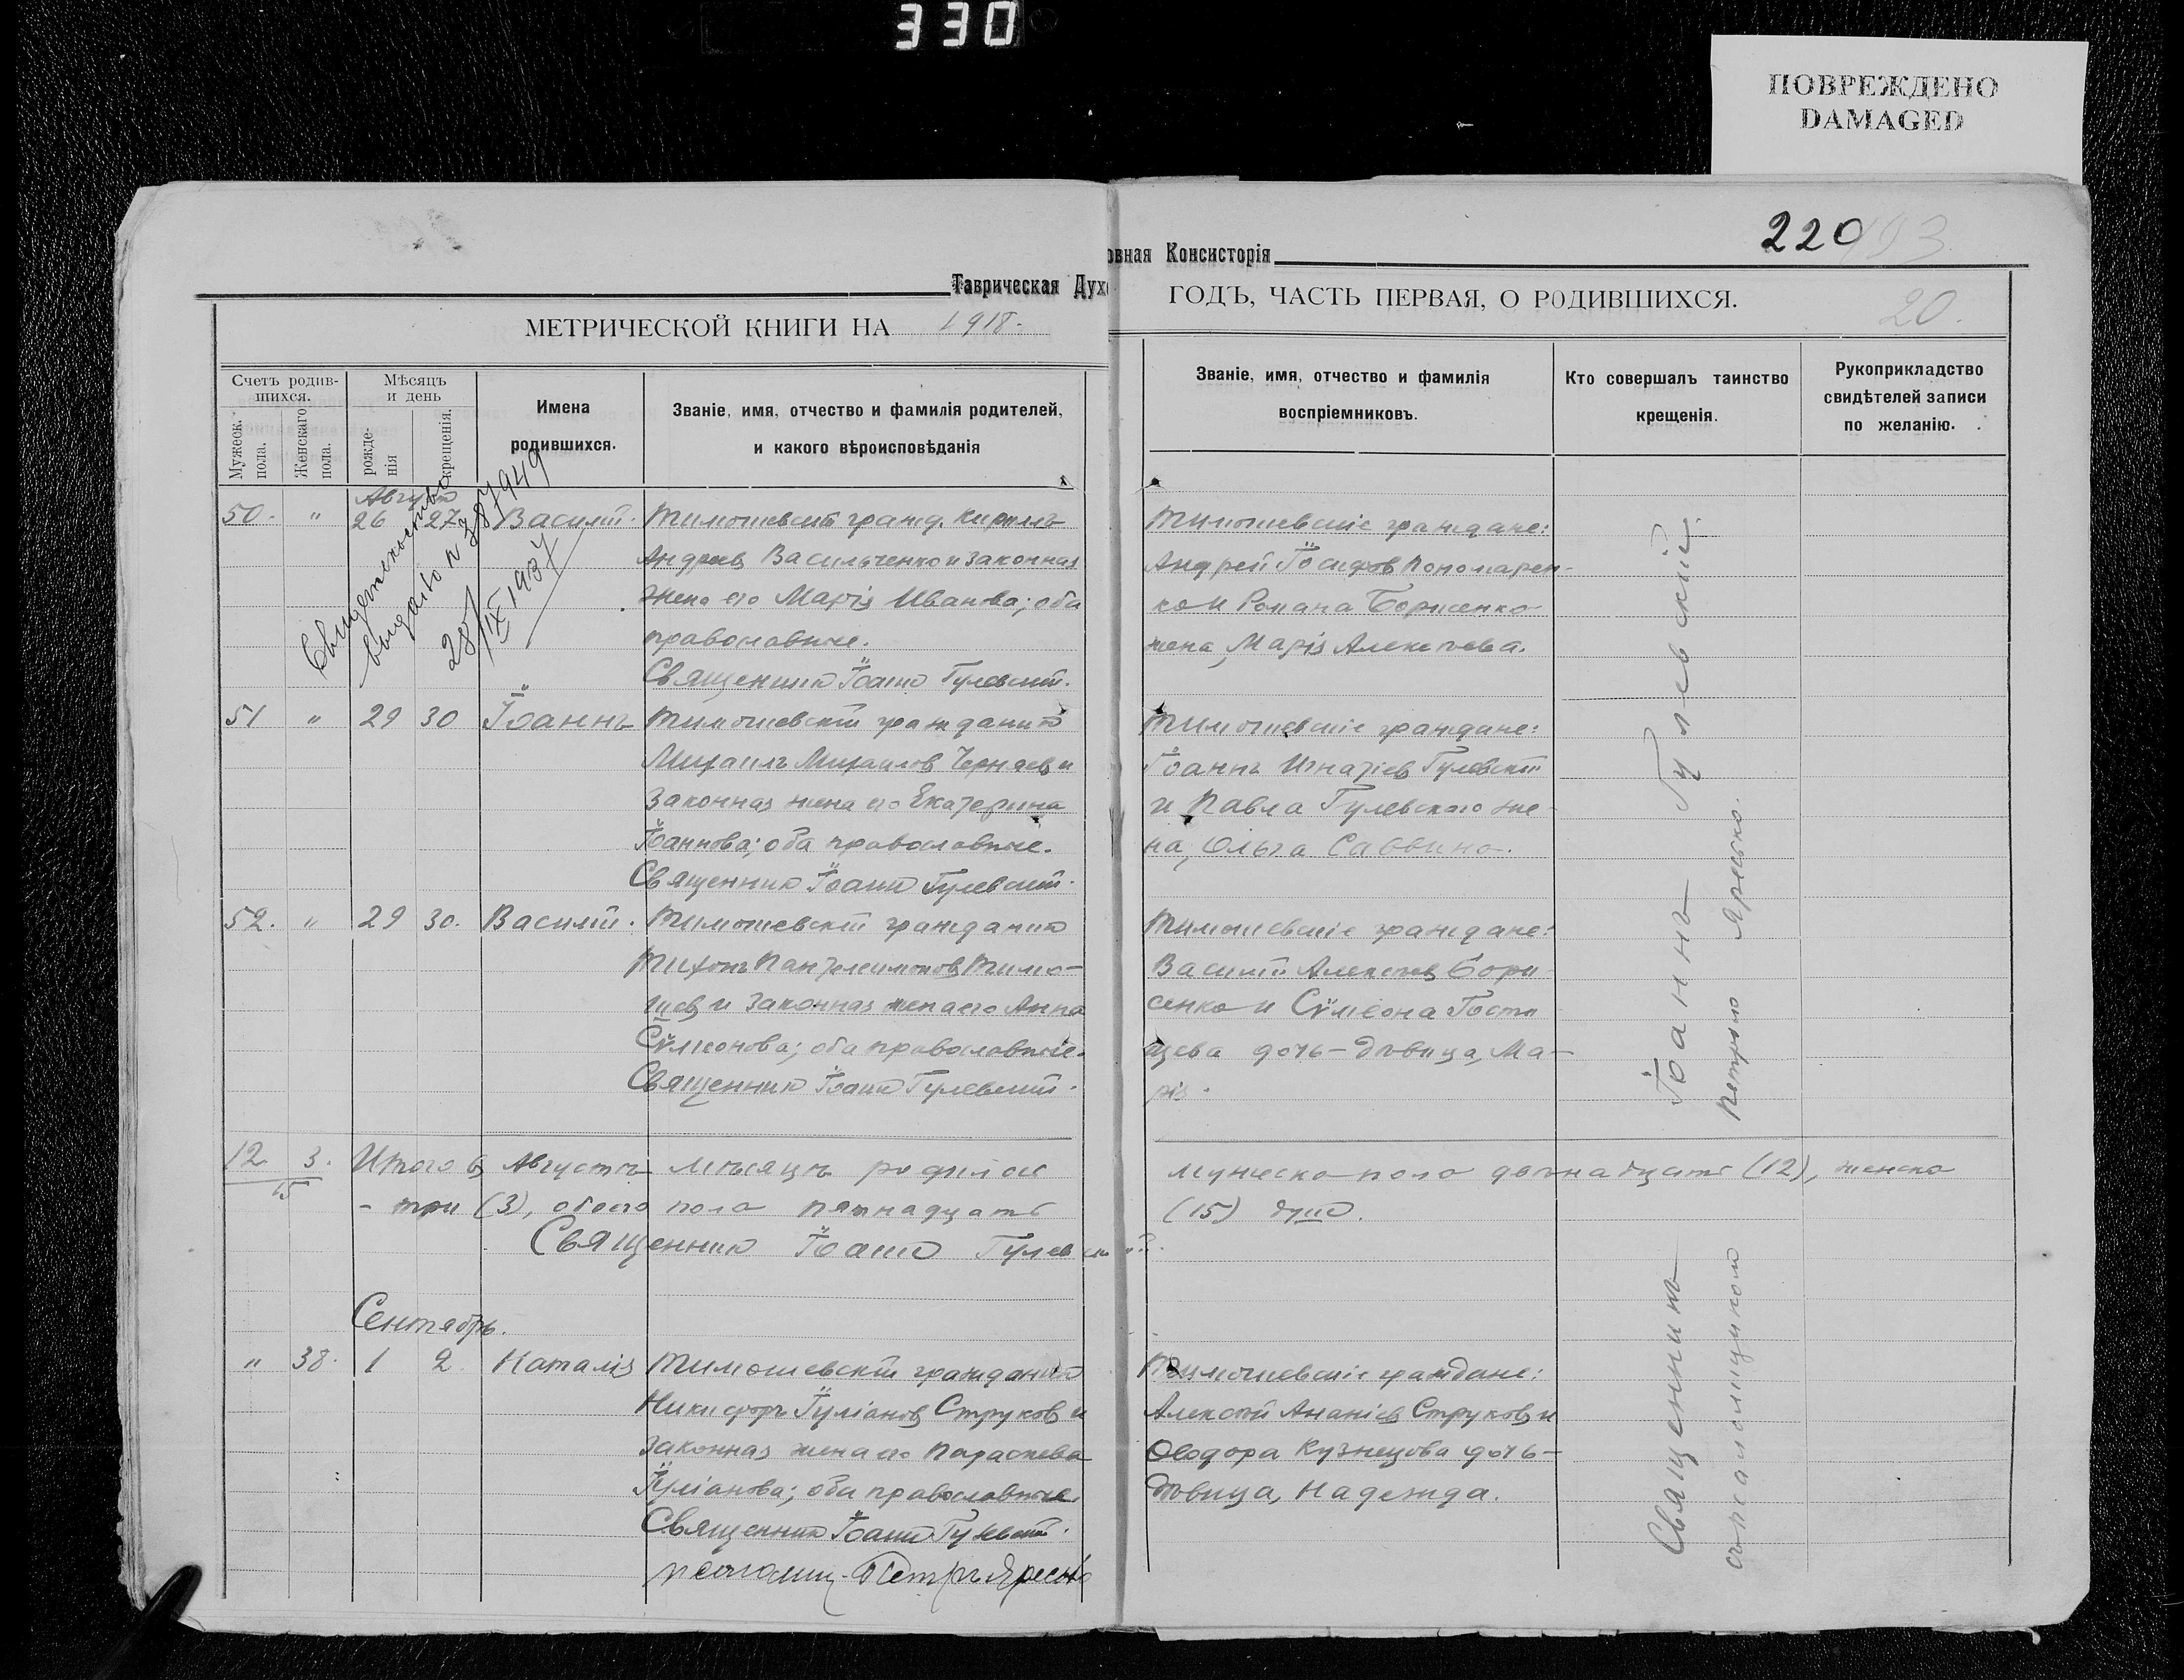 330
ПОВРЕЖДЕНО
DAMAGED
220
193
20.
Таврическая Духовная Консисторія
МЕТРИЧЕСКОЙ КНИГИ НА 1918.
ГОДЪ, ЧАСТЬ ПЕРВАЯ, О РОДИВШИХСЯ.
Счетъ родившихся.
Мужеск. пола.
Женскаго пола.
Мѣсяцъ и день
рожденія
крещенія.
Имена родившихся.
Званіе, имя, отчество и фамилія родителей,
и какого вѣроисповѣданія
Званіе, имя, отчество и фамилія
воспріемниковъ.
Кто совершалъ таинство
крещенія.
Рукоприкладство
свидѣтелей записи
по желанію.
Август
50. " 26 27 Василій. Тимошевскій гражд. Кирилъ
Андреев Васильченко и законная
жена его Марія Иванова; оба
православные.
Священник Іоанн Гулевскій.
Свидетельство
выдано № 387949
28/IX 1937
Тимошевскіе граждане:
Андрей Іосифов Пономарен-
ко и Романа Борисенко
жена, Марія Алексѣева.
51 " 29 30 Іоаннъ Тимошевскій гражданин
Михаилъ Михаилов Черняев и
законная жена его Екатерина
Іоаннова; оба православные.
Священник Іоанн Гулевскій.
Тимошевскіе граждане:
Іоаннъ Игнатіев Гулевскій
и Павла Гулевского же-
на, Ольга Саввина.
52. " 29 30. Василій. Тимошевскій гражданин
Тихонъ Пантелеимонов Тимо-
шев и законная жена его Анна
Сѵмеонова; оба православные.
Священник Іоанн Гулевскій.
Тимошевскіе граждане:
Василій Алексѣев Бори-
сенко и Сѵмеона Гости
щева дочь-дѣвица, Ма-
рія.
12 3. Итого в Августѣ мѣсяцѣ родилось
мужеска пола двѣнадцать (12), женска
15
- три (3), обоего пола пятнадцать
(15) душ.
Священник Іоанн Гулевскій.
Сентябрь.
" 38. 1 2 Наталія Тимошевскій гражданин
Никифоръ Іуліанов Струков и
законная жена его Параскева
Іуліанова; оба православные.
Священник Іоанн Гулевскій.
псаломщ. Петръ Яресько
Тимошевскіе граждане:
Алексѣй Ананіев Струков и
Ѳеодора Кузнецова дочь-
дѣвица, Надежда.
Священникъ Іоаннъ Гулевскій.
съ псаломщиком Петром Яресько.